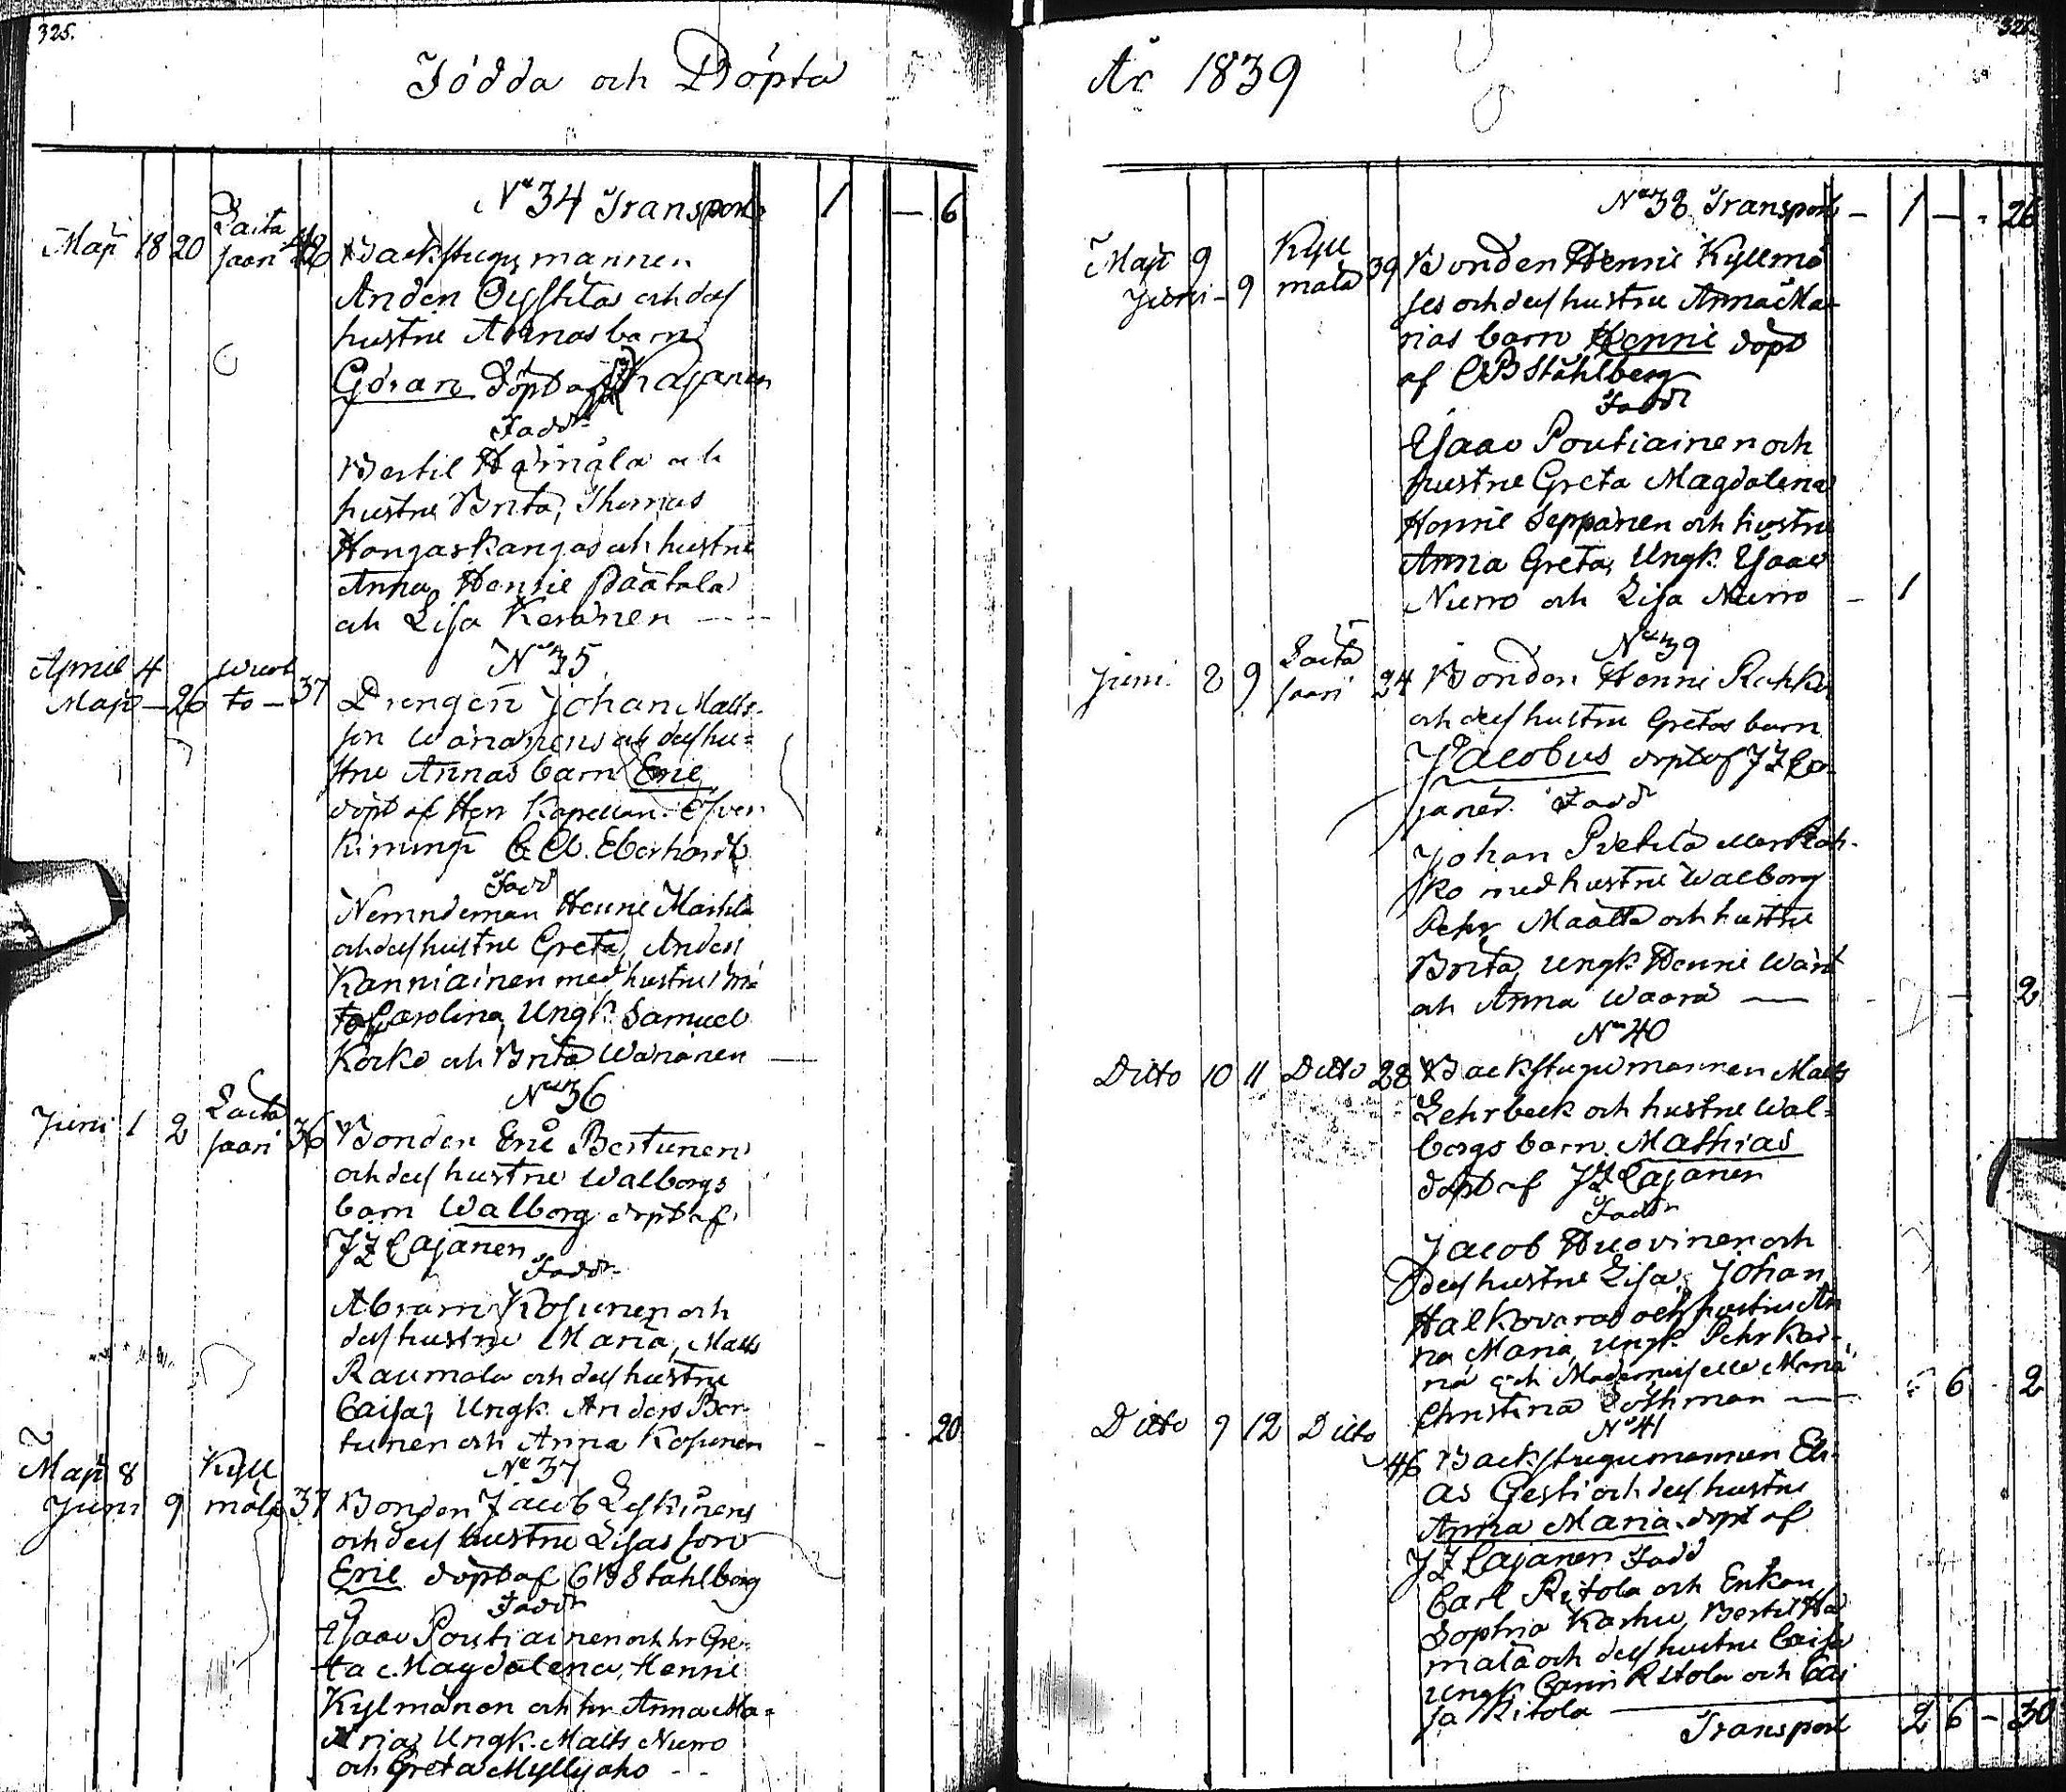 325.
Födda och Döpta
N° 34 Transport 1 — 6
Maji 18 20 Laita
saari Backstugumannen
Anders och dess
hustru Annas barn
Göran döpt af Kajanen
Fadd:
Bertil Hämälä och
hustru Brita, Thomas
Hongaskangas och hustru
Anna, Henric Päätalo
och Lisa Keränen
N° 35
April 4
Maji — 26 to — 37 Drengen Johan Matts-
son Wänänens och dess hu=
stru Annas barn Eric
döpt af Herr Kapellan i Öfver
Kiiminge Eberhardt
Fadd
Nemndeman Henric
och dess hustru Greta, Anders
Kanniainen med hustru
Carolina, Ungk. Samuel
Korko och Brita Wänänen —
N° 36
Juni 1 2 Laita
saari 36 Bonden Eric Bertunens
och dess hustru Walborgs
barn Walborg döpt af
J Z Cajanen
Fadd:
Abram Kosunen och
dess hustru Maria, Matts
Raumala och dess hustru
Caisa, Ungk. Anders Ber-
tunen och Anna Kosunen - - 20
N° 37
Maji 8 Kyll
Juni 9 mälä 37 Bonden Jacob Leskinens
och dess hustru Lisas son
Eric döpt af C B Ståhlberg
Fadd:
Isaac Poutiainen och hr Gre-
ta Magdalena, Henric
Kylmänen och hr Anna Ma=
ria, Ungk. Matts Nurro
och Greta Myllyaho - -
År 1839
N° 38 Transport — 1 — - 26
Maji 9 Kyll
Juni - 9 mälä 39 Bonden Henric Kyllmä
ses och dess hustru Anna Ma-
rias barn Henric döpt
af C B Ståhlberg
Fadd
Isaac Poutiainen och
hustru Greta Magdalena
Henric Seppänen och hustru
Anna Greta, Ungk. Isaac
Nurro och Lisa Nurro — 1
N° 39
Juni 8 9 Laita
saari 34 Bonden Henric
och dess hustru Gretas barn
Jacobus döpt af J Z Ca-
janen. Fadd
Johan Pietilä
med hustru Walborg
Pehr Määttä och hustru
Brita, Ungk. Henric
och Anna Waara — — 2
N° 40
Ditto 10 11 Ditto 28 Backstugumannen Matts
Lehrbeck och hustru Wal-
borgs barn Mathias
döpt af J Z Cajanen
Fadd:
Jacob Huovinen och
dess hustru Lisa, Johan
Halkovaara och hustru An
na Maria, Ungk. Pehr Kai-
nä och Mademoiselle Maria
Christina Lothman — 6 - 2
N° 41
Ditto 9 12 Ditto 46 Backstugumannen Eli-
as Gesti och dess hustru
Anna Maria döpt af
J Z Cajanen Fadd
Carl Ritola och Enkan
Sophia Karhu, Bertil Hä
mälä och dess hustru Caisa
Ungk. Ritola och Cai
sa Ritola —
Transport 2 6 — 30